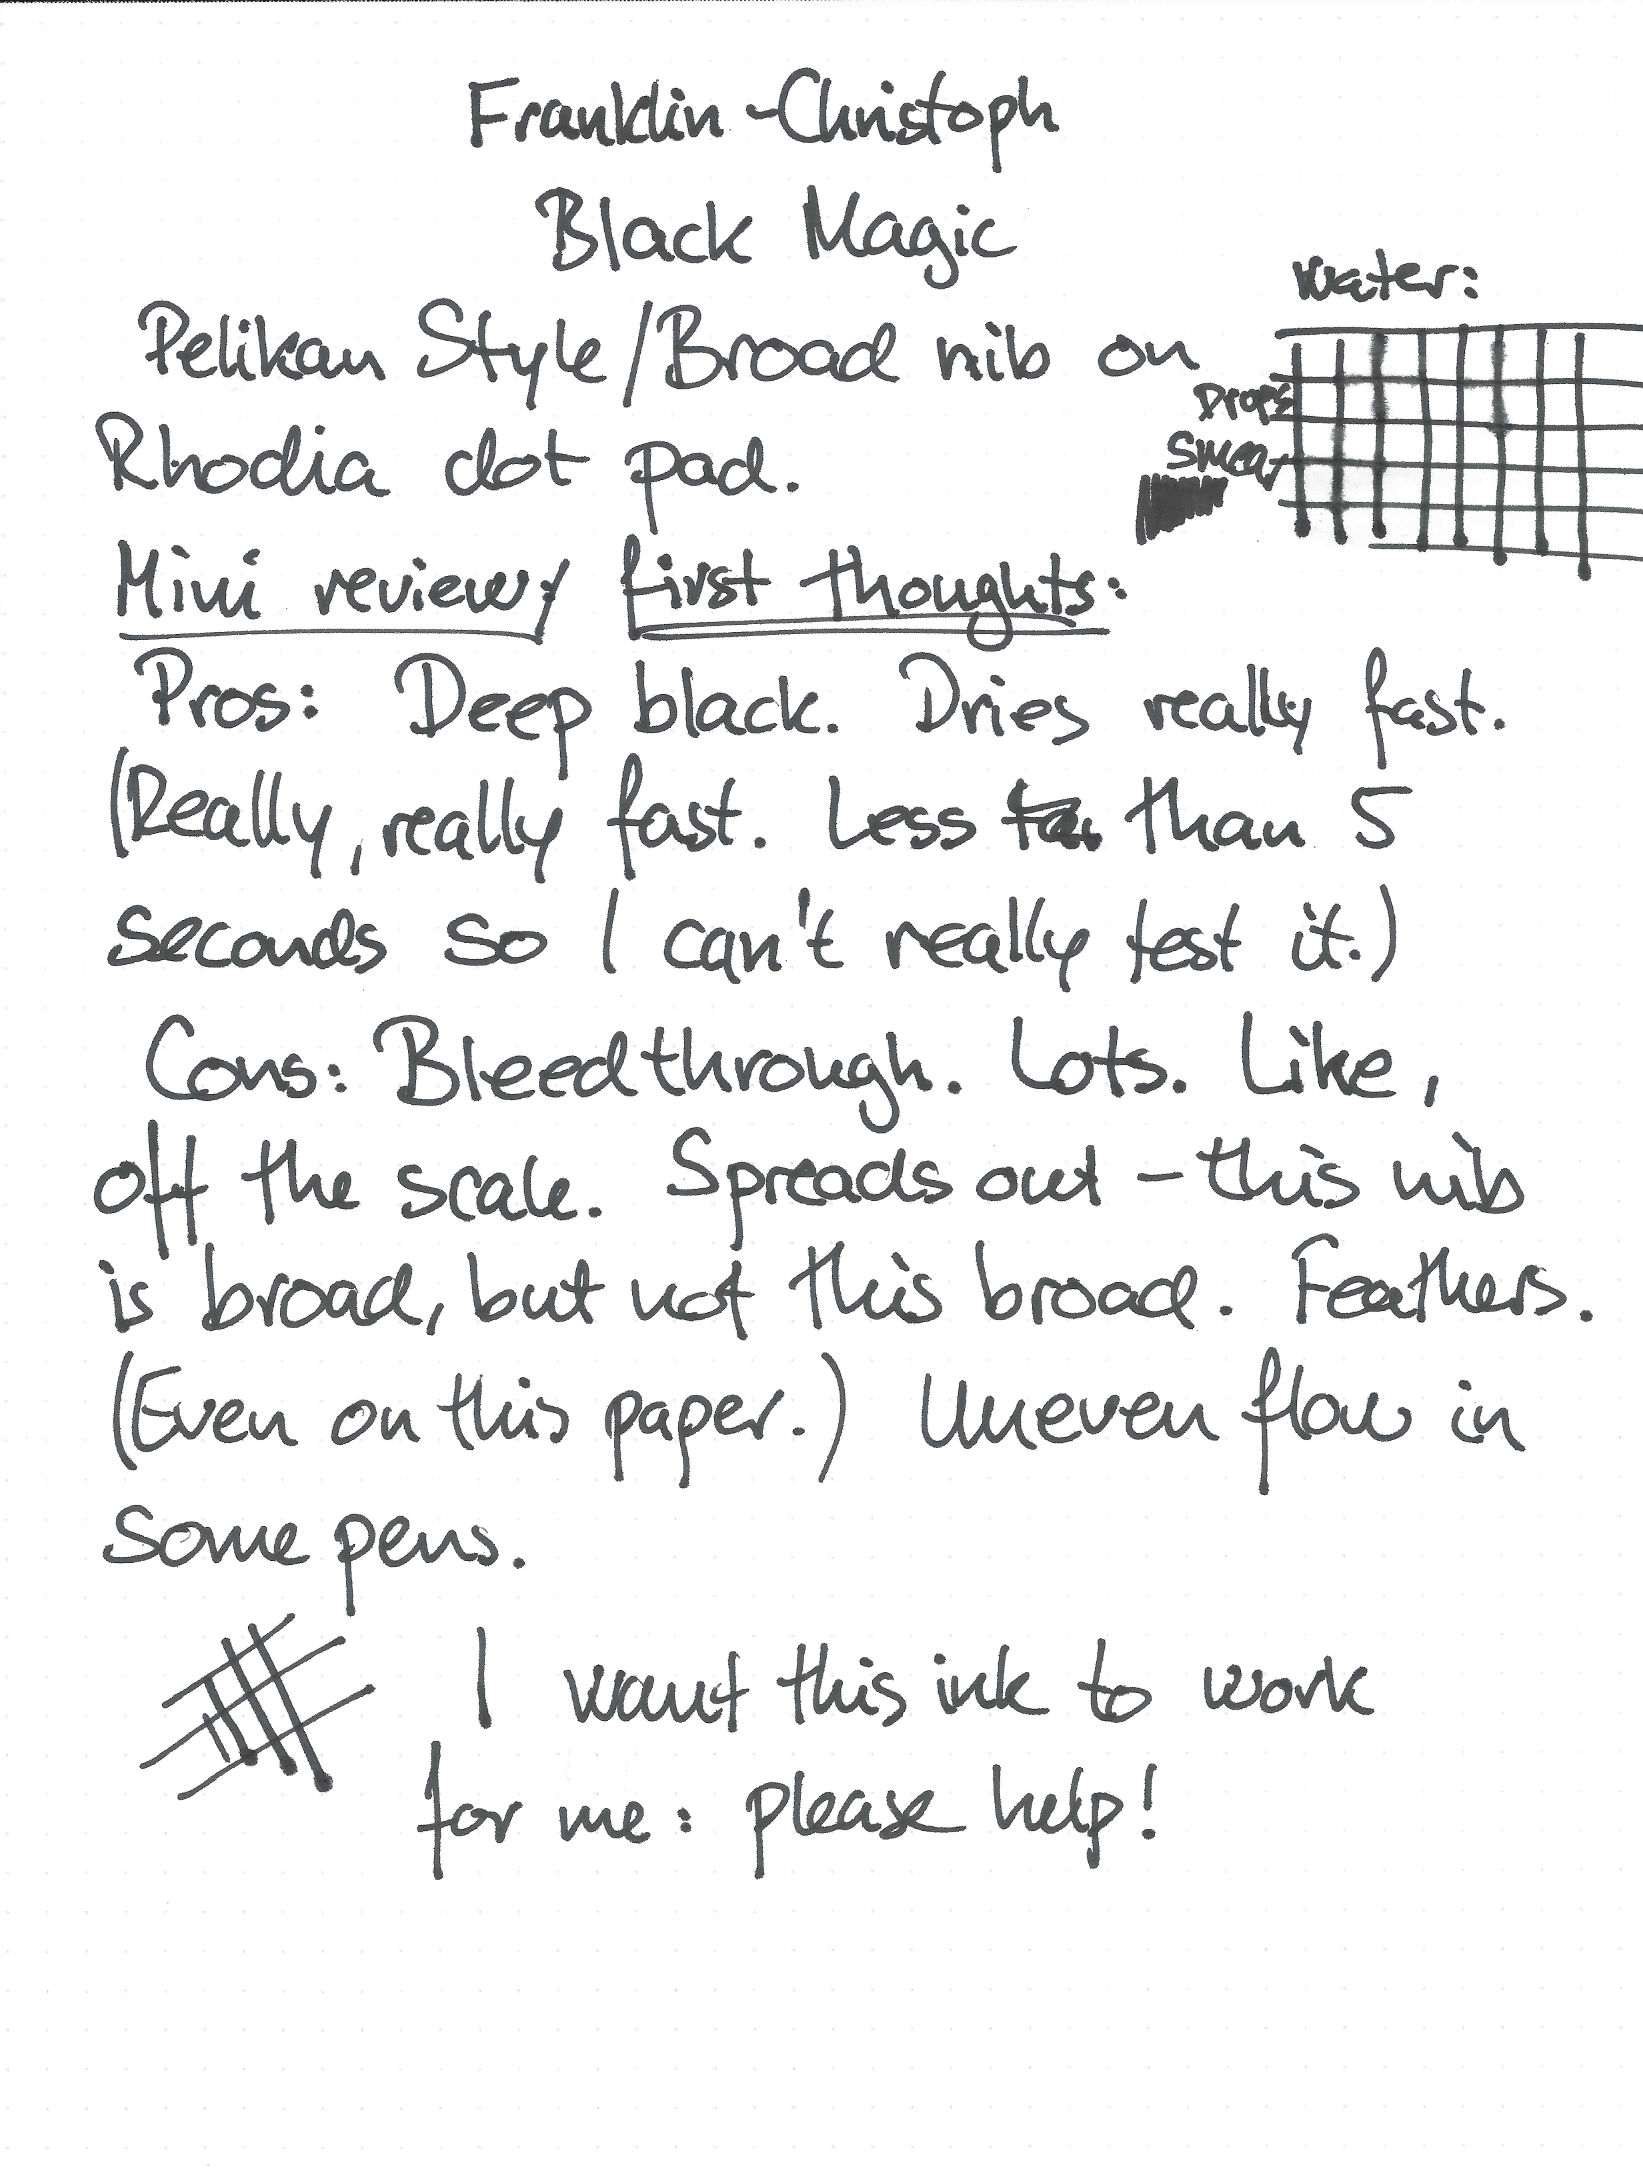 Franklin-Christoph
Black Magic
Water:
Pelikan Style/Broad nib on
Drops
Smear
Rhodia dot pad.
Mini review/ first thoughts:
Pros: Deep black. Dries really fast.
(Really, really fast. Less than 5
seconds so I can't really test it.)
Cons: Bleedthrough. Lots. Like,
off the scale. Spreads out - this nib
is broad, but not this broad. Feathers.
(Even on this paper.) Uneven flow in
some pens.
I want this ink to work
for me: please help!